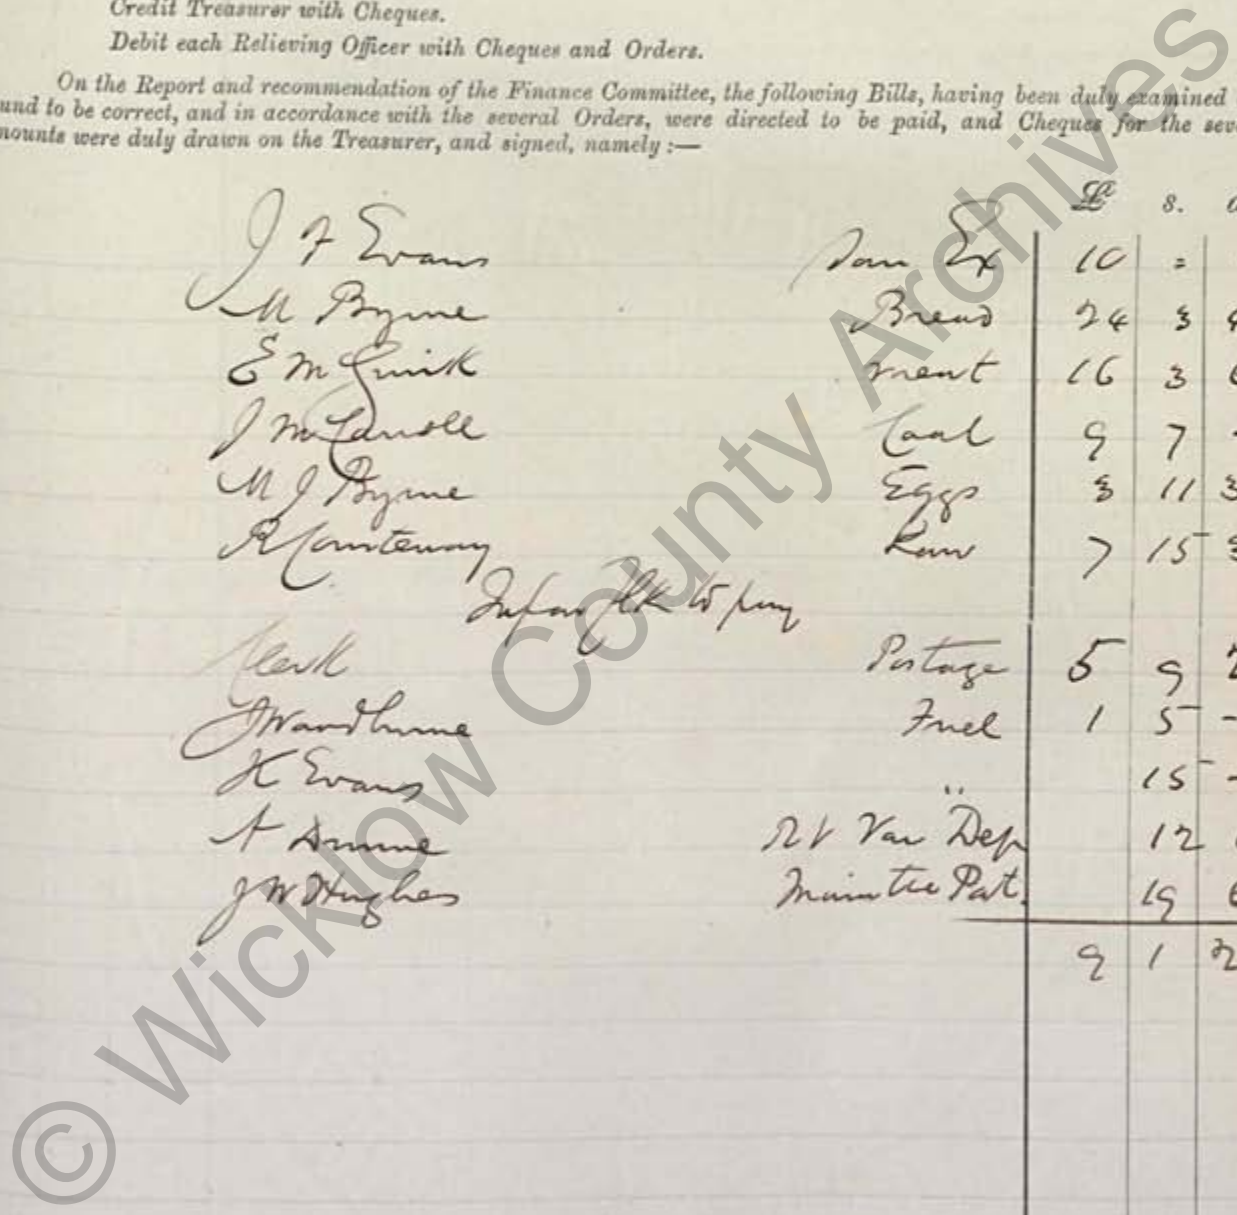 Credit Treasurer with Cheques.
Debit each Relieving Officer with Cheques and Orders.
On the Report and recommendation of the Finance Committee, the following Bills, having been duly examined
und to be correct, and in accordance with the several Orders, were directed to be paid, and Cheques for the seve
mounts were duly drawn on the Treasurer, and signed, namely :—
£ s. d
J F Evans San Ex 10 =
M Byrne Bread 24 3 4
E McGuirk meat 16 3 6
J McCarroll Coal 9 7 -
M J Byrne Eggs 3 11 3
R Courtenay 7 15 3
to pay
Clerk Postage 5 9 2
Fuel 1 5 -
H Evans " 15 -
A Dunne Van Dep 12
J W Hughes Pat. 19 6
9 1 2
© Wicklow County Archives